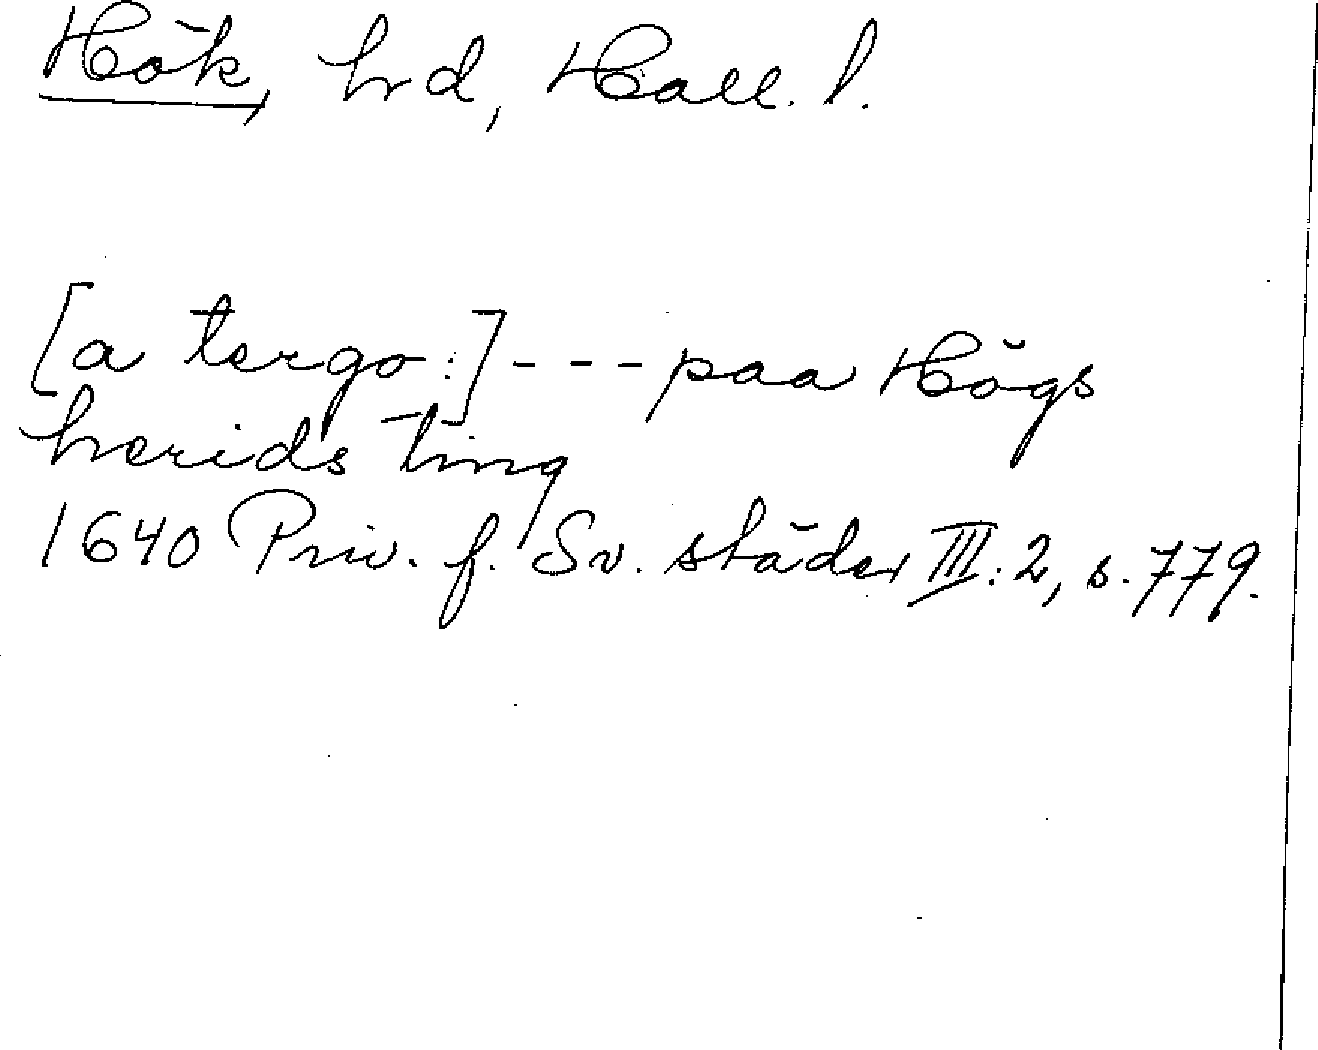 Hök, hd, Hall. l.
[a tergo:] --- paa Högs
herids ting
1640 Priv. f. Sv. städer III:2, s. 779.